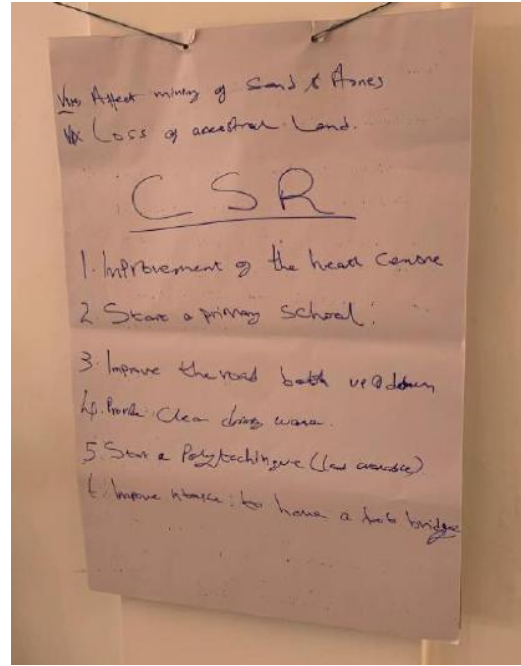 viii. Affect mining of Sand & Stones
ix Loss of ancestral Land.
CSR
1. Improvement of the heath Centre
2. Start a primary School.
3. Improve the road both up & down
4. Provide Clean water.
5. Start a Polytechinque (land available)
Improve to have a foot bridge